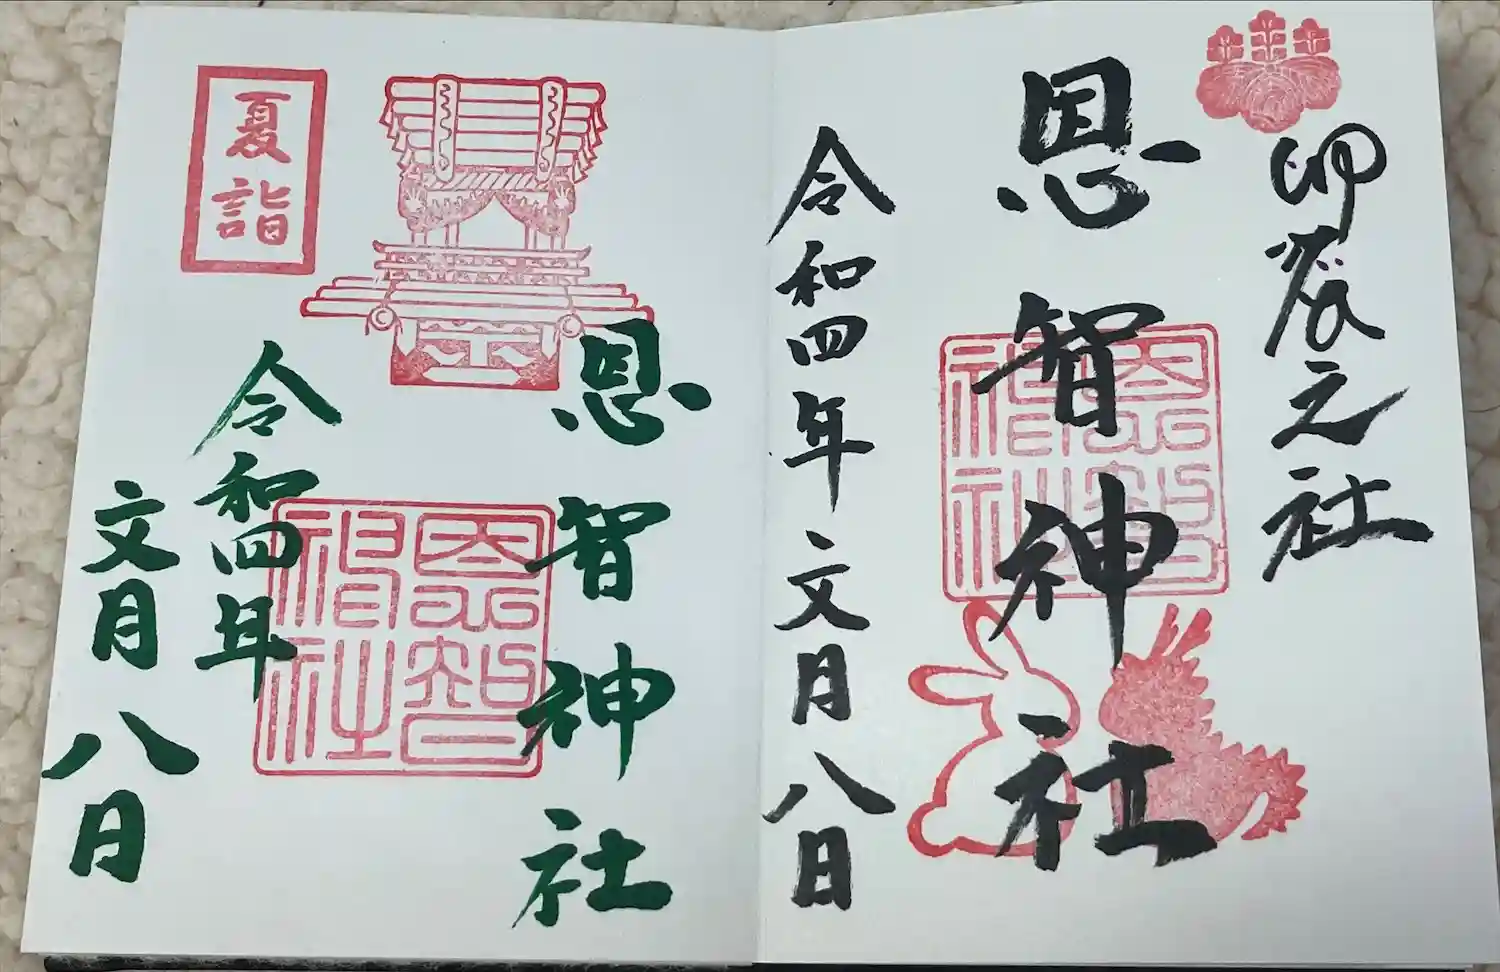 卯辰之社
恩智神社
恩智
神社
令和四年文月八日
恩智神社
恩智
神社
令和四年
文月八日
夏詣